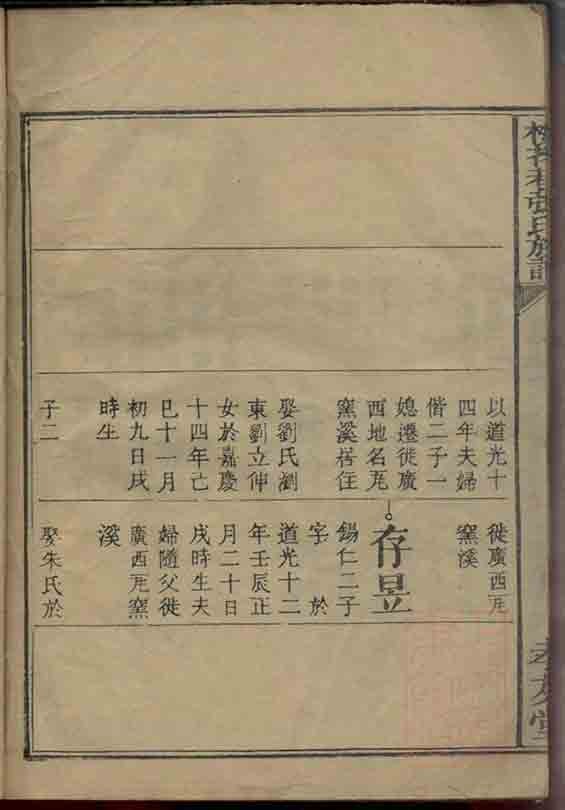 張氏族
孝友堂
以道光十
四年夫婦
偕二子一
媳遷徙廣
西地名瓦
窯溪居住
娶劉氏瀏
東劉立仲
女於嘉慶
十四年己
巳十一月
初九日戌
時生
子二
徙廣西瓦
窯溪
存昱
錫仁二子
字 於
道光十二
年壬辰正
月二十日
戌時生夫
婦隨父徙
廣西瓦窯
溪
娶朱氏於